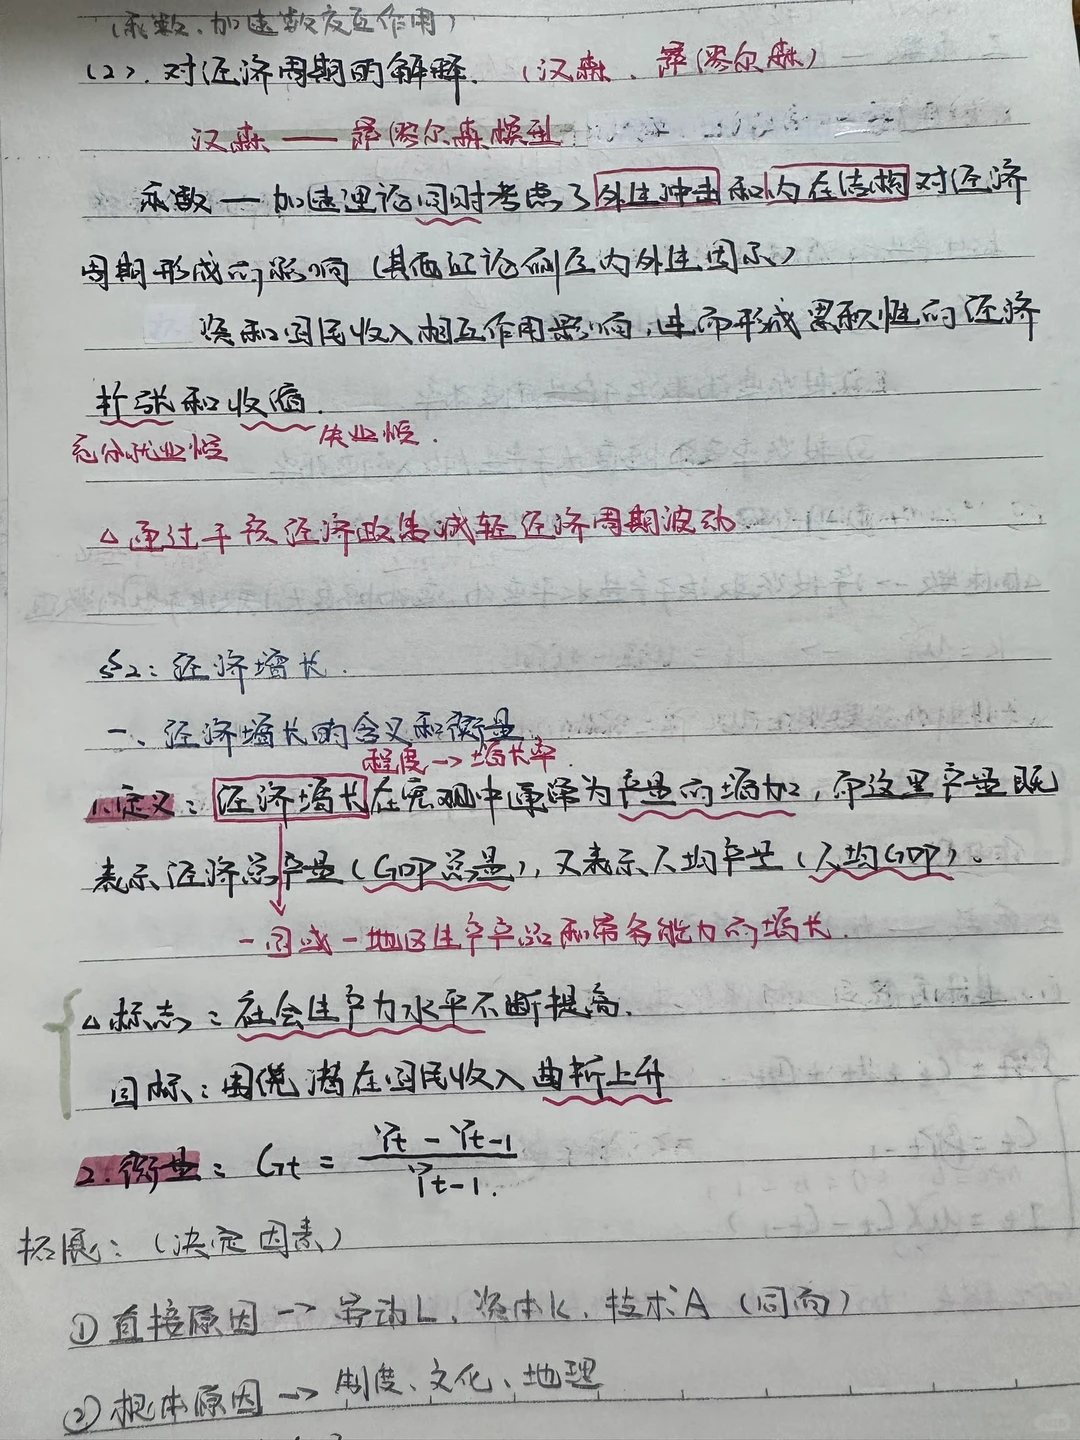 (乘数、加速数交互作用)
(2). 对经济周期的解释. (汉森、萨缪尔森)
汉森——萨缪尔森模型
乘数—加速理论同时考虑了外生冲击和内在结构对经济
周期形成的影响(其他理论侧重内外生因素)
资和国民收入相互作用影响,进而形成累积性的经济
扩张和收缩.
充分就业恒 失业恒.
△通过干预经济政策减轻经济周期波动
§2:经济增长.
一、经济增长的含义和衡量.
程度→增长率.
1.定义:经济增长在宏观中通常为产量的增加,而这里产量既
表示经济总产量(GDP总量),又表示人均产量(人均GDP).
一国或一地区生产产品和劳务能力的增长.
△标志:社会生产力水平不断提高.
目标:围绕潜在国民收入曲折上升
2.衡量:Gt = Yt - Yt-1 / Yt-1.
拓展:(决定因素)
①直接原因→劳动L、资本K、技术A(同向)
②根本原因→制度、文化、地理